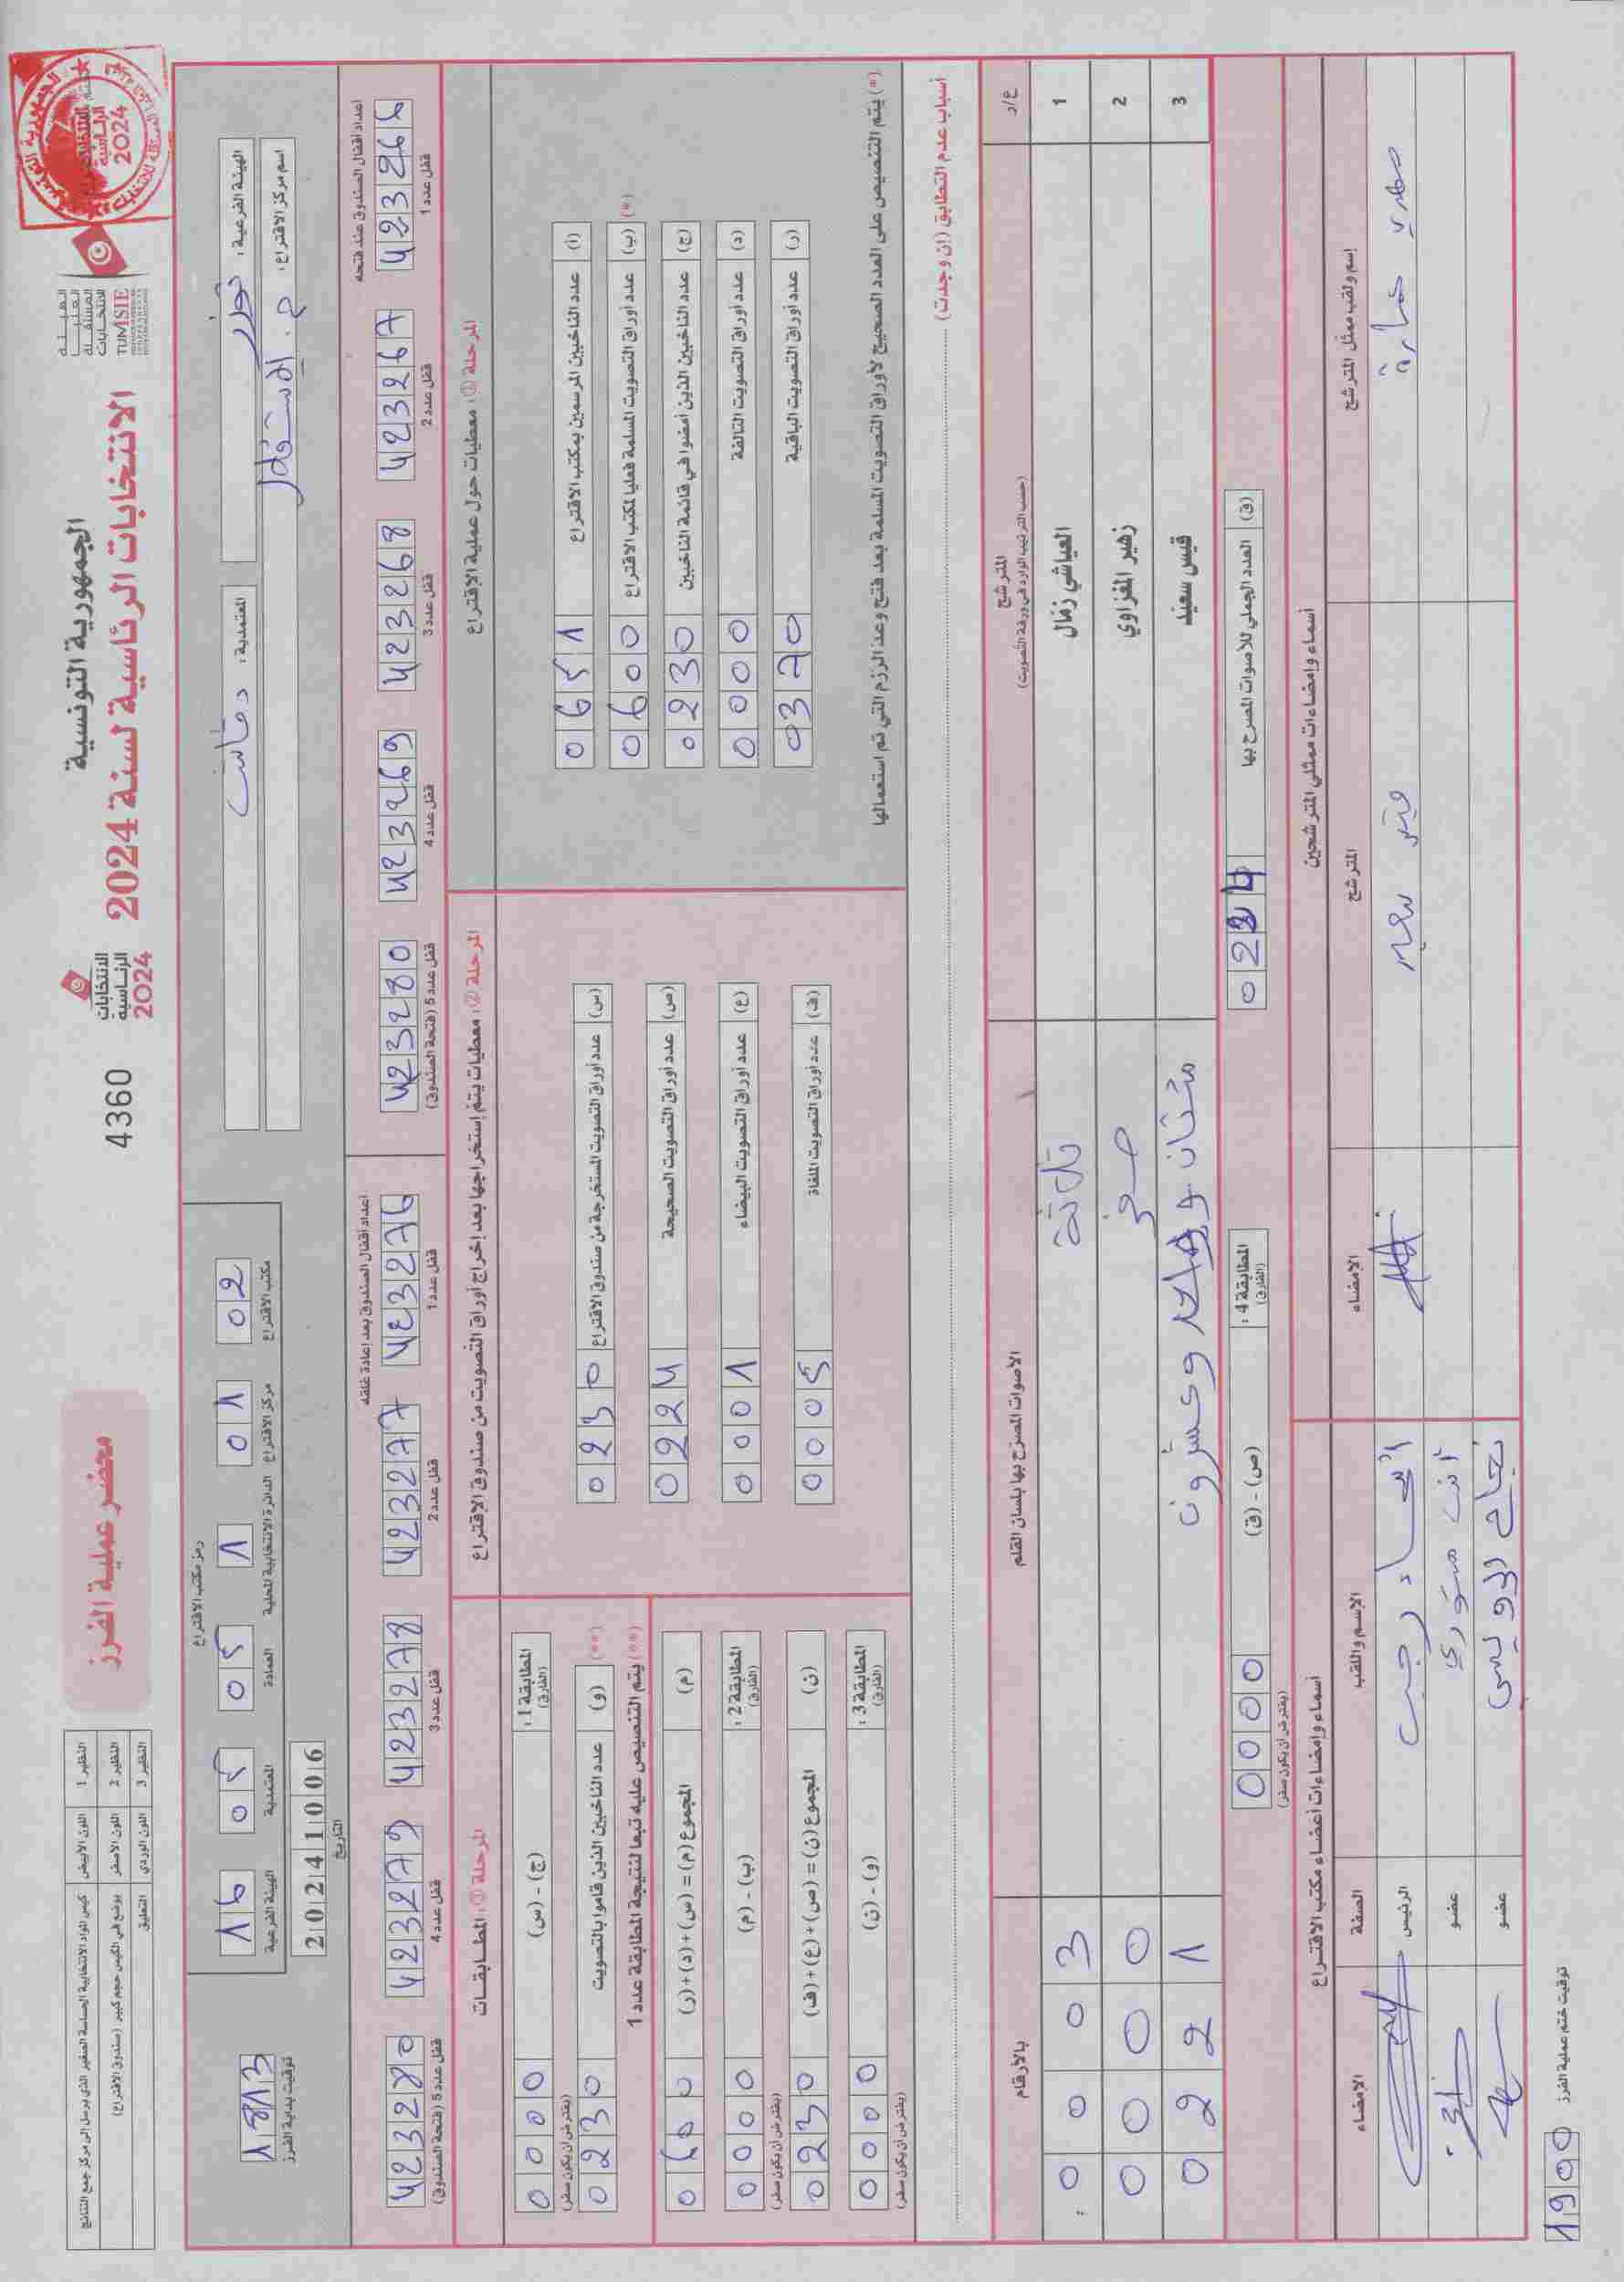 الجمهورية التونسية
الانتخابات الرئاسية لسنة 2024
الهيئة
العليا
المستقلة
للانتخابات
TUNISIE
الانتخابات
الرئاسية
2024
4360
محضر عملية الفرز
النظير 1 اللون الأبيض كيس المواد الانتخابية الحساسة الصغير الذي يرسل إلى مركز جمع النتائج
النظير 2 اللون الأصفر يوضع في الكيس حجم كبير (صندوق الاقتراع)
النظير 3 اللون الوردي التعليق
الهيئة الفرعية: توزر
المعتمدية: دقاش
اسم مركز الاقتراع: م. الاستقلال
رمز مكتب الاقتراع
02 01 1 05 05 16
مكتب الاقتراع مركز الاقتراع الدائرة الانتخابية المحلية العمادة المعتمدية الهيئة الفرعية
20241006
التاريخ
1813
توقيت بداية الفرز
أعداد أقفال الصندوق عند فتحه
423266 423267 423268 423269 423280
قفل عدد 1 قفل عدد 2 قفل عدد 3 قفل عدد 4 قفل عدد 5 (فتحة الصندوق)
أعداد أقفال الصندوق بعد إعادة غلقه
423276 423277 423278 423279 423280
قفل عدد 1 قفل عدد 2 قفل عدد 3 قفل عدد 4 قفل عدد 5 (فتحة الصندوق)
المرحلة ①: معطيات حول عملية الاقتراع
(أ) عدد الناخبين المرسمين بمكتب الاقتراع 0651
(*) (ب) عدد أوراق التصويت المسلمة فعليا لمكتب الاقتراع 0600
(ج) عدد الناخبين الذين أمضوا في قائمة الناخبين 0230
(د) عدد أوراق التصويت التالفة 0000
(ر) عدد أوراق التصويت الباقية 0370
(*) يتم التنصيص على العدد الصحيح لأوراق التصويت المسلمة بعد فتح وعد الرزم التي تم استعمالها
المرحلة ②: معطيات يتم إستخراجها بعد إخراج أوراق التصويت من صندوق الاقتراع
(س) عدد أوراق التصويت المستخرجة من صندوق الاقتراع 0230
(ص) عدد أوراق التصويت الصحيحة 0224
(ع) عدد أوراق التصويت البيضاء 0001
(ف) عدد أوراق التصويت الملغاة 0005
المرحلة ③: المطابقات
المطابقة 1: (الفارق) (ج) - (س) 0000
(يفترض أن يكون صفر)
(**) (و) عدد الناخبين الذين قاموا بالتصويت 0230
(**) يتم التنصيص عليه تبعا لنتيجة المطابقة عدد 1
(م) المجموع (م) = (س) + (د) + (ر) 0600
المطابقة 2: (الفارق) (ب) - (م) 0000
(يفترض أن يكون صفر)
(ن) المجموع (ن) = (ص) + (ع) + (ف) 0230
المطابقة 3: (الفارق) (و) - (ن) 0000
(يفترض أن يكون صفر)
أسباب عدم التطابق (إن وجدت)
ع/د المترشح (حسب الترتيب الوارد في ورقة التصويت) الأصوات المصرح بها بلسان القلم بالأرقام
1 العياشي زمال ثلاثة 003
2 زهير المغزاوي صفر 0000
3 قيس سعيد مئتان وواحد وعشرون 0221
(ق) العدد الجملي للأصوات المصرح بها 0224
المطابقة 4: (الفارق) (ص) - (ق) 0000
(يفترض أن يكون صفر)
أسماء وإمضاءات ممثلي المترشحين
إسم ولقب ممثل المترشح المترشح الإمضاء
قيس سعيد
أسماء وإمضاءات أعضاء مكتب الاقتراع
الاسم واللقب الصفة الإمضاء
رجب الرئيس
عضو
نجاح عضو
توقيت ختم عملية الفرز 1900